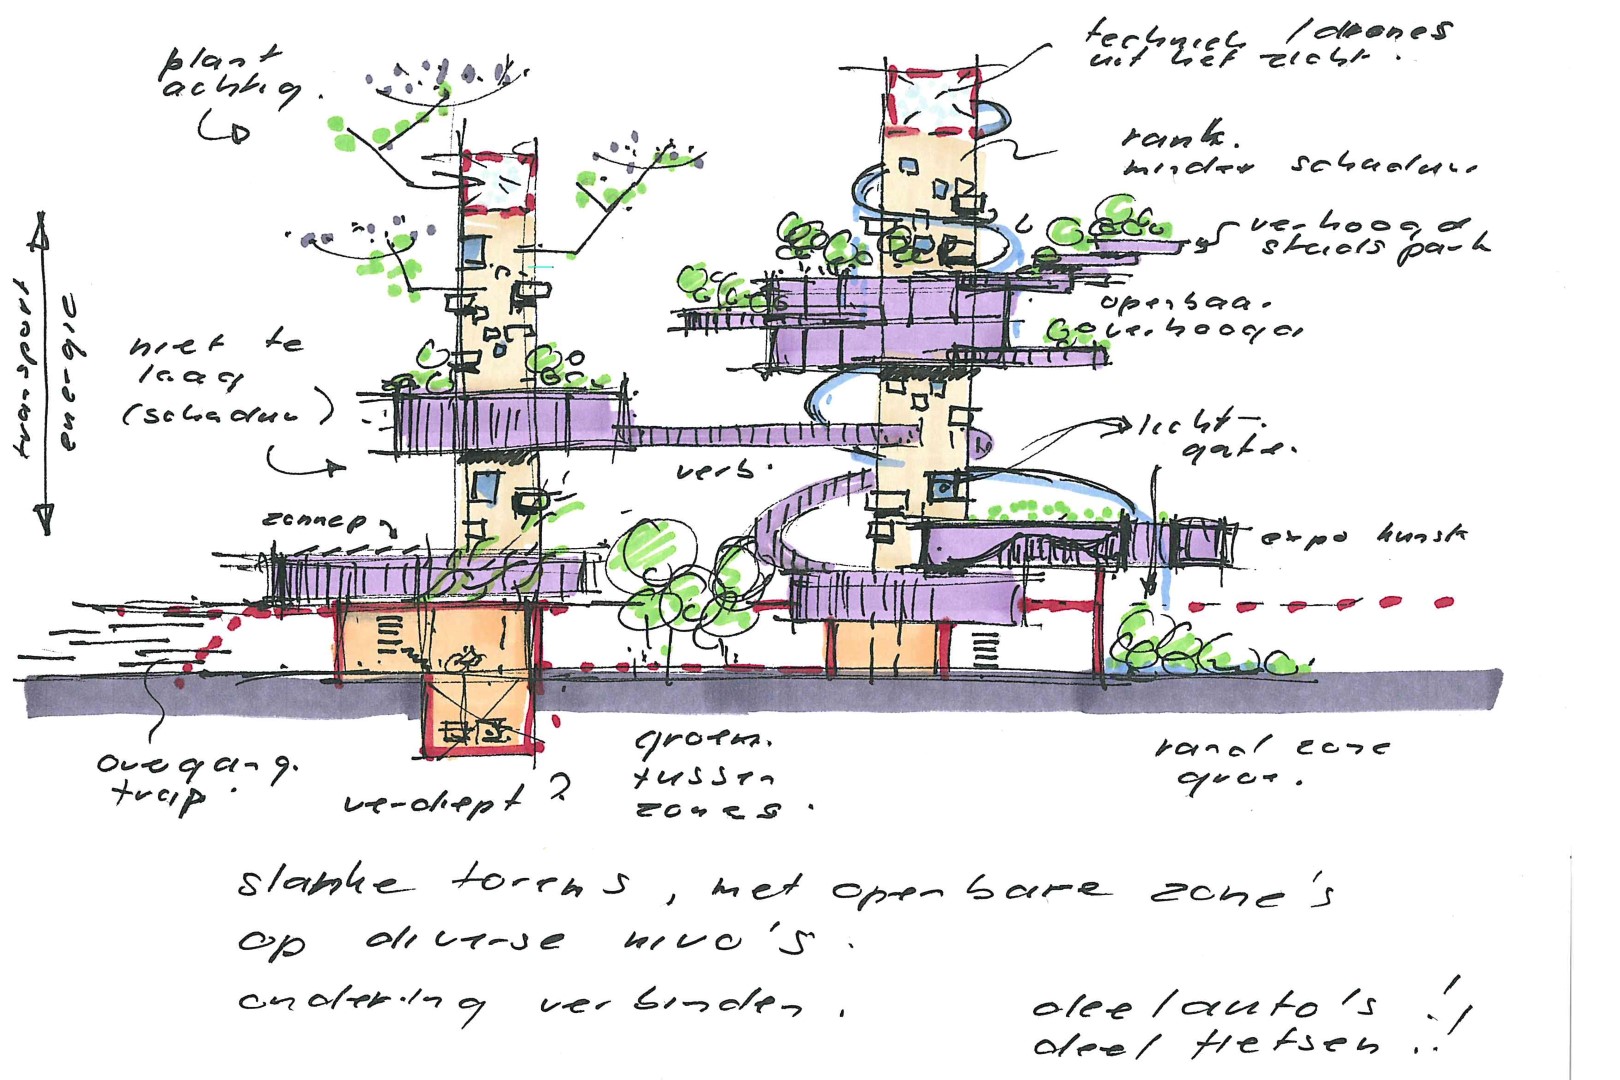 plant
achtig.
techniek / drones
uit het zicht.
rank.
minder schaduw.
verhoogd
stadspark
openbaar
verhoogd
transport
energie
niet te
laag
(schaduw)
licht-
gate.
verb.
zonnep
expo kunst
overgang.
trap.
verdiept?
groen.
tussen
zones.
rand zone
groe.
slanke torens, met openbare zone's
op diverse nivo's.
onderling verbinden.
deelauto's !
deel fietsen ..!